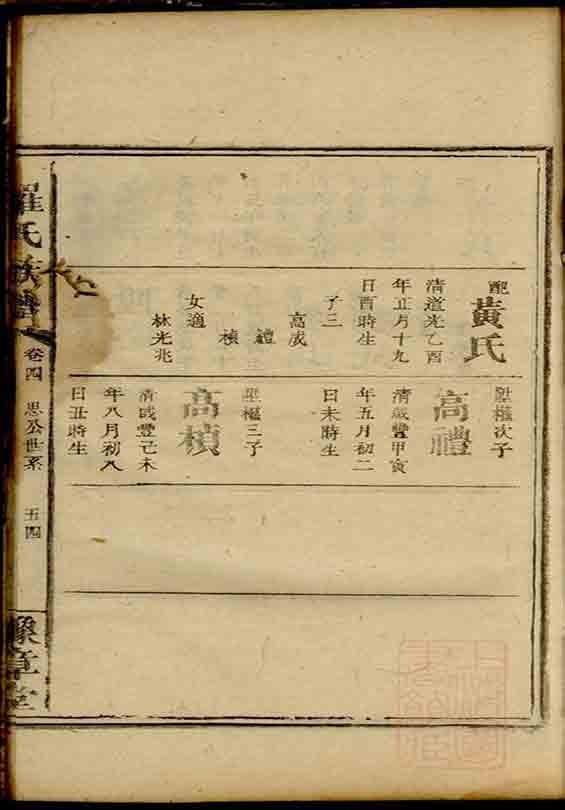 配黃氏
清道光乙酉
年正月十九
日酉時生
子三
高成
禮
楨
女適
林光兆
次子
高禮
清咸豐甲寅
年五月初二
日未時生
三子
高楨
清咸豐己未
年八月初八
日丑時生
羅氏族譜
卷四
思公世系
五四
豫章堂